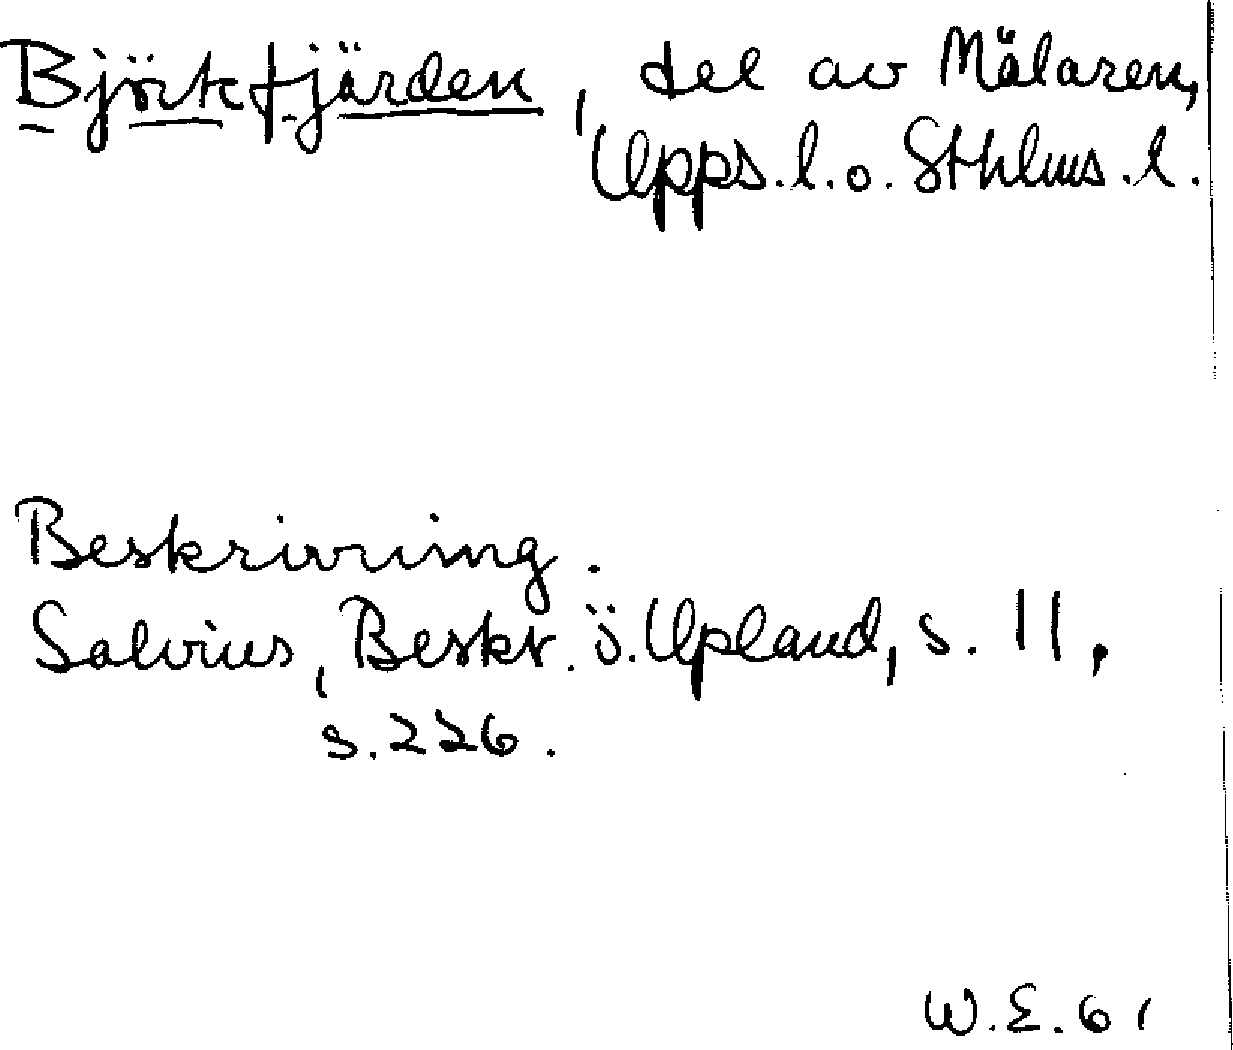 Björkfjärden, del av Mälaren,
Upps. l. o. Sthlms. l.
Beskrivning.
Salvius, Beskr. ö. Upland, s. 11,
s. 226.
W. E. 61